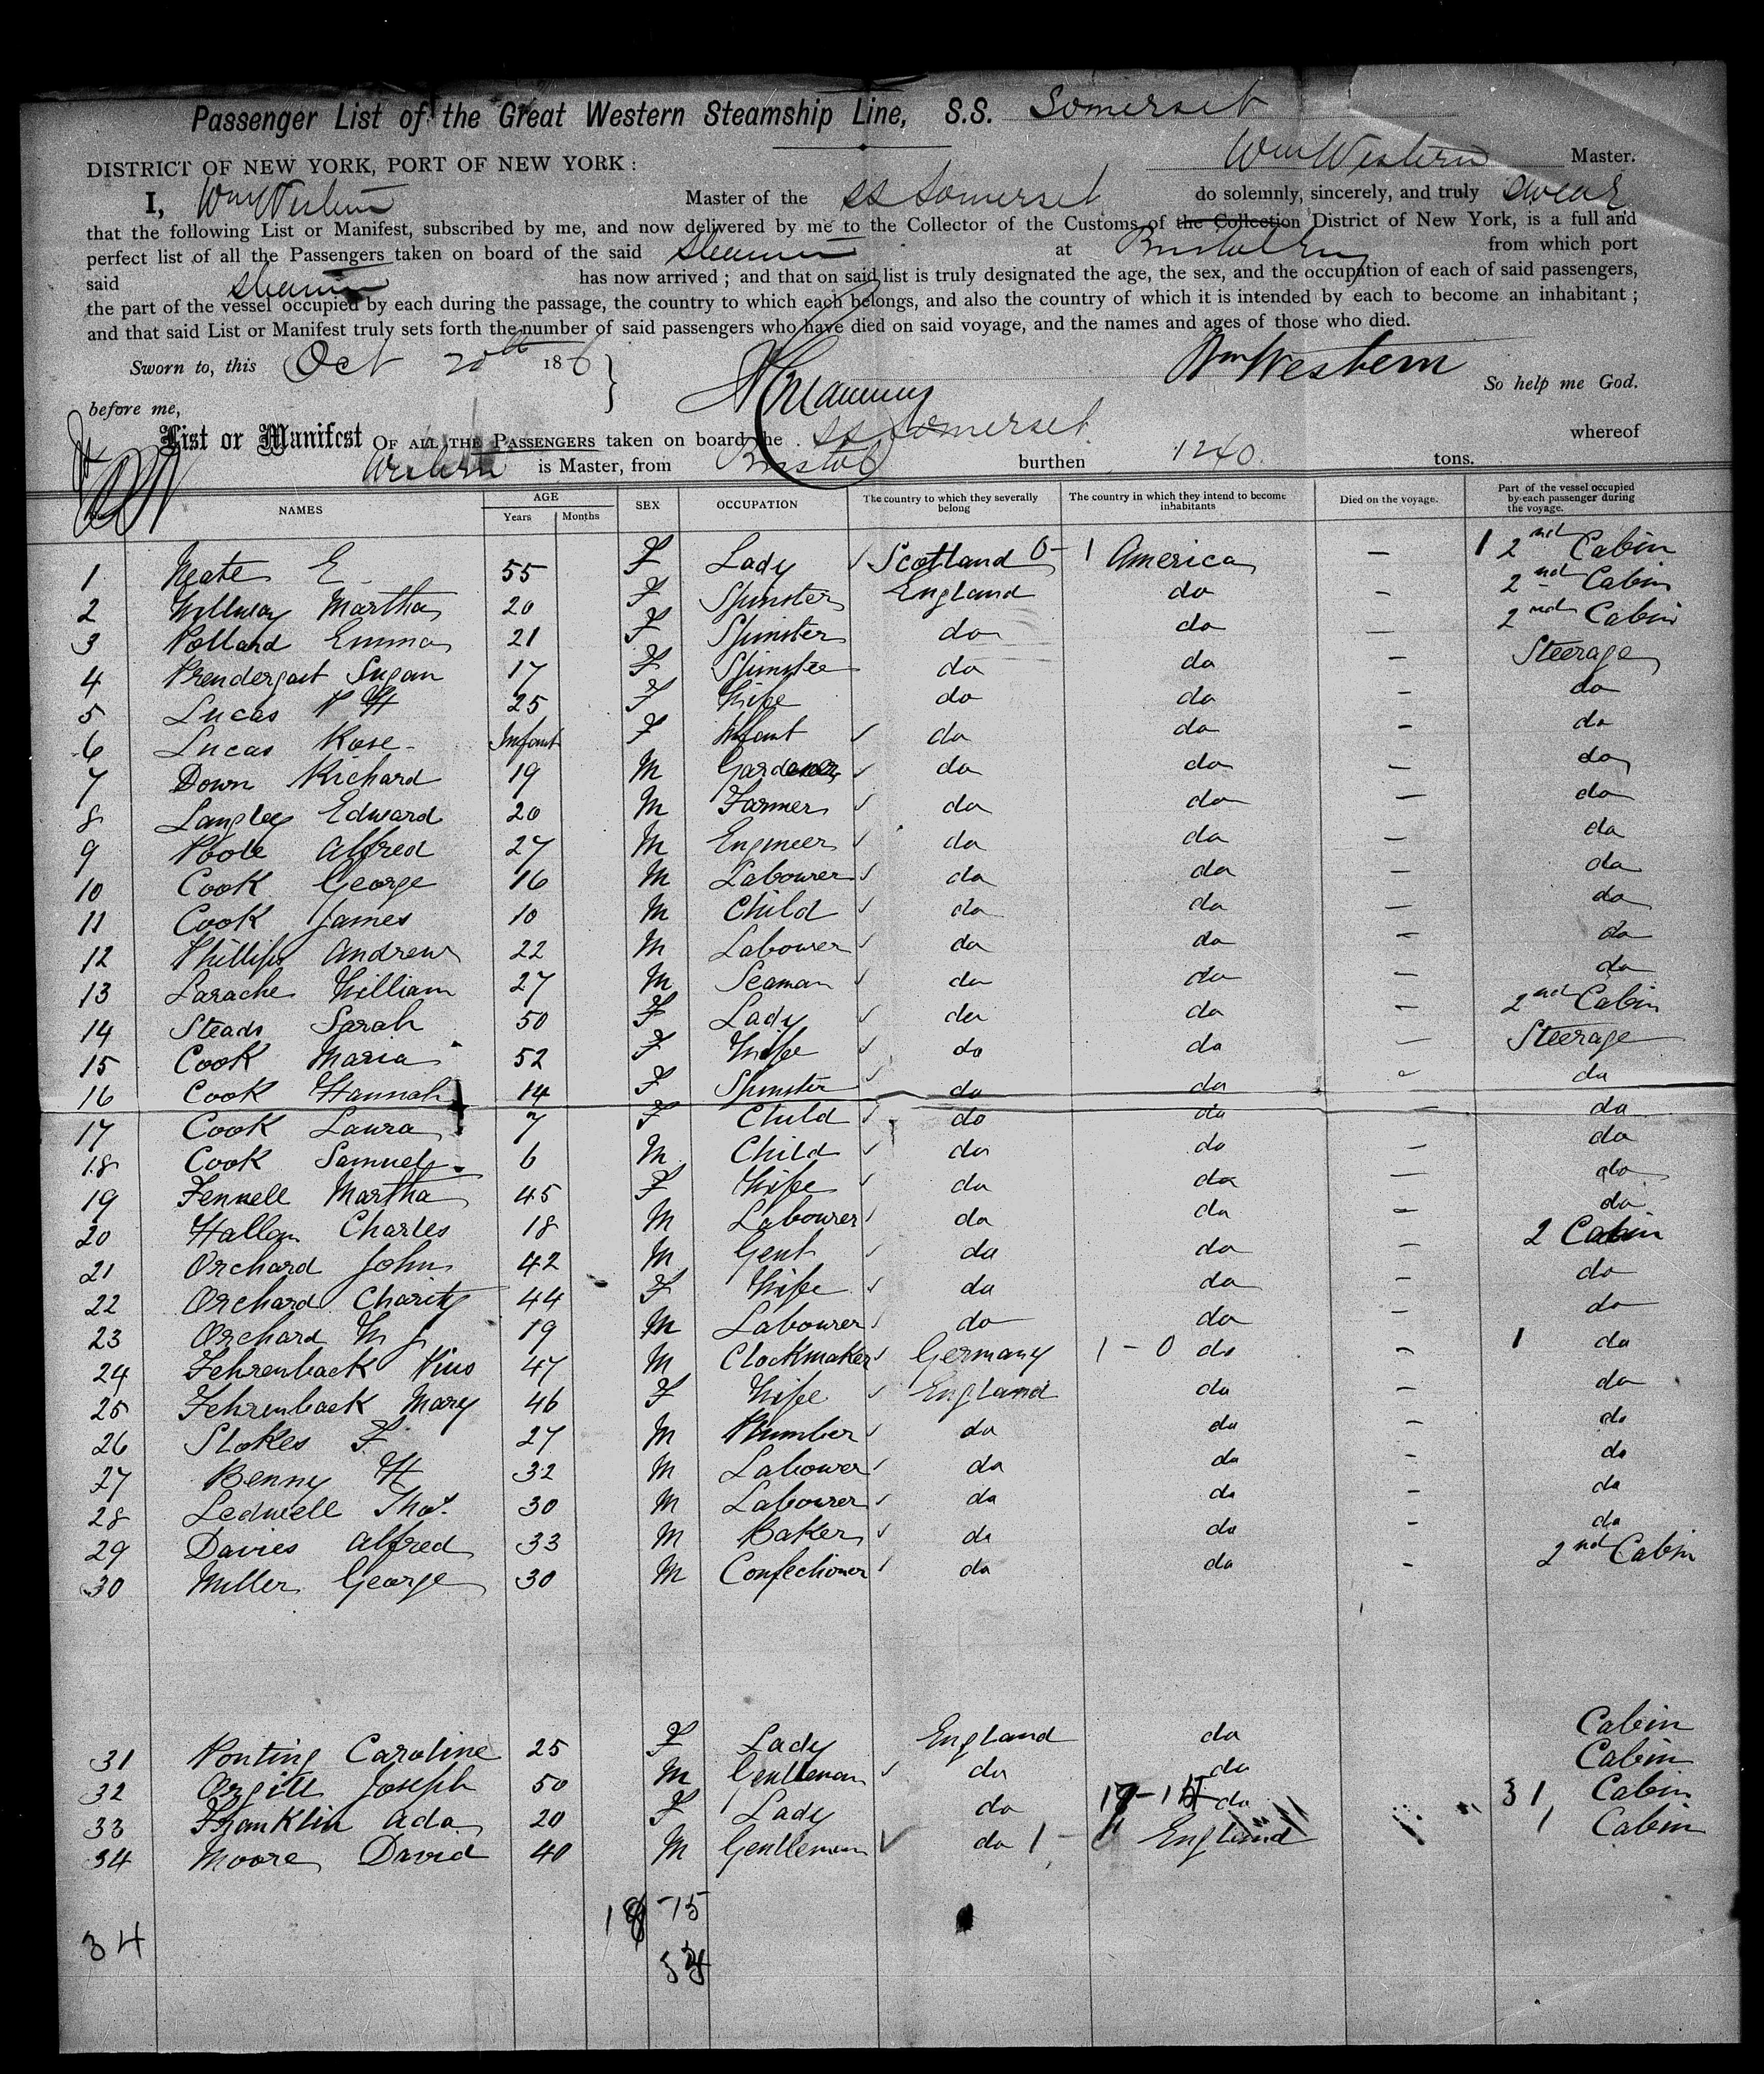 Passenger List of the Great Western Steamship Line, S.S. Somerset
DISTRICT OF NEW YORK, PORT OF NEW YORK : Wm Western Master.
I, Wm Western Master of the SS Somerset do solemnly, sincerely, and truly swear
that the following List or Manifest, subscribed by me, and now delivered by me to the Collector of the Customs of the Collection District of New York, is a full and
perfect list of all the Passengers taken on board of the said steamer at Bristol Eng from which port
said steamer has now arrived ; and that on said list is truly designated the age, the sex, and the occupation of each of said passengers,
the part of the vessel occupied by each during the passage, the country to which each belongs, and also the country of which it is intended by each to become an inhabitant ;
and that said List or Manifest truly sets forth the number of said passengers who have died on said voyage, and the names and ages of those who died.
Sworn to, this Oct 20th 186 Wm Western So help me God.
before me,
List or Manifest OF ALL THE PASSENGERS taken on board the SS Somerset whereof
Western is Master, from Bristol burthen 1240 tons.
NAMES AGE Years Months SEX OCCUPATION The country to which they severally belong The country in which they intend to become inhabitants Died on the voyage. Part of the vessel occupied by each passenger during the voyage.
1 Neate E 55 F Lady ✓ Scotland 0-1 America — 1 2nd Cabin
2 Willway Martha 20 F Spinster England do — 2nd Cabin
3 Polland Emma 21 F Spinster do do — 2nd Cabin
4 Prendergast Susan 17 F Spinster do do — Steerage
5 Lucas P H 25 F Wife do do — do
6 Lucas Rose Infant F Infant ✓ do do — do
7 Down Richard 19 M Gardener ✓ do do — do
8 Langley Edward 20 M Farmer ✓ do do — do
9 Poole Alfred 27 M Engineer ✓ do do — do
10 Cook George 16 M Labourer ✓ do do — do
11 Cook James 10 M Child ✓ do do — do
12 Phillips Andrew 22 M Labourer ✓ do do — do
13 Larache William 27 M Seaman ✓ do do — do
14 Steads Sarah 50 F Lady ✓ do do — 2nd Cabin
15 Cook Maria 52 F Wife ✓ do do — Steerage
16 Cook Hannah 14 F Spinster ✓ do do — do
17 Cook Laura 7 F Child ✓ do do — do
18 Cook Samuel 6 M Child ✓ do do — do
19 Fennell Martha 45 F Wife ✓ do do — do
20 Hallen Charles 18 M Labourer ✓ do do — do
21 Orchard John 42 M Gent ✓ do do — 2 Cabin
22 Orchard Charity 44 F Wife ✓ do do — do
23 Orchard W J 19 M Labourer ✓ do do — do
24 Fehrenback Pius 47 M Clockmaker ✓ Germany 1-0 do — 1 do
25 Fehrenback Mary 46 F Wife ✓ England do — do
26 Stokes F 27 M Plumber ✓ do do — do
27 Benny H 32 M Labourer ✓ do do — do
28 Ledwell Thos. 30 M Labourer ✓ do do — do
29 Davies Alfred 33 M Baker ✓ do do — do
30 Miller George 30 M Confectioner ✓ do do — 2nd Cabin
31 Ponting Caroline 25 F Lady England do Cabin
32 Orgill Joseph 50 M Gentleman ✓ do do Cabin
33 Franklin Ada 20 F Lady do do 31 Cabin
34 Moore David 40 M Gentleman ✓ do England 1 Cabin
34